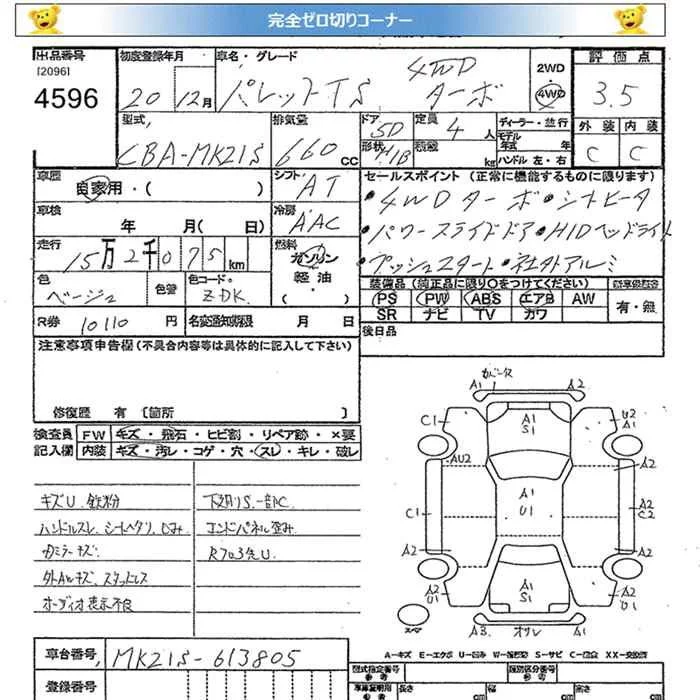 完全ゼロ切りコーナー
出品番号 初度登録年月 車名・グレード 2WD 評価点
[2096] 4WD
4596 20 12月 パレットTS ターボ 4WD 3.5
型式 排気量 ドア 5D 定員 4人 ディーラー・並行 外装 内装
CBA-MK21S 660cc 形状 H/B 積載 kg モデル年式 年 C C
ハンドル 左・右
車歴 自家用・( ) シフト AT セールスポイント (正常に機能するものに限ります)
車検 年 月( 日) 冷房 AAC ・4WDターボ・シートヒータ
走行 15万2千075km 燃料 ガソリン 軽油 ・( ) ・パワースライドドア・HIDヘッドライト
・プッシュスタート・社外アルミ
色 ベージュ 色替 色コード ZDK 装備品 (純正品に限り○をつけてください)
PS PW ABS エアB AW 有・無
SR ナビ TV カワ
R券 10110円 名変通知期限 月 日 後日品
注意事項申告欄 (不具合内容等は具体的に記入して下さい)
修復歴 有 [箇所 ]
検査員 FW キズ・飛石・ヒビ割・リペア跡・×要
記入欄 内装 キズ・汚レ・コゲ・穴・スレ・キレ・破レ
キズU、鉄粉 下廻りS、一部C
ハンドルスレ、シートヘタリ、シミ コンドパネル歪み
カミラーキズ R7035U
外AWキズ、スタッドレス
オーディオ表示不良
カバーズ
A1 A2
C1 A1 S1 U2 A1
AU2 A2
A1 U1
C1 A2 C2
A2 A2
A2 U1 A1 S1 A2 U1
スペア A3 オリレ A1
A-キズ E-エクボ U-凹み W-補修跡 S-サビ C-腐食 XX-交換済
車台番号 MK21S-613805
登録番号
型式指定番号 参考 類別区分番号 参考
車庫証明用 参考 長さ cm 幅 cm 高さ cm